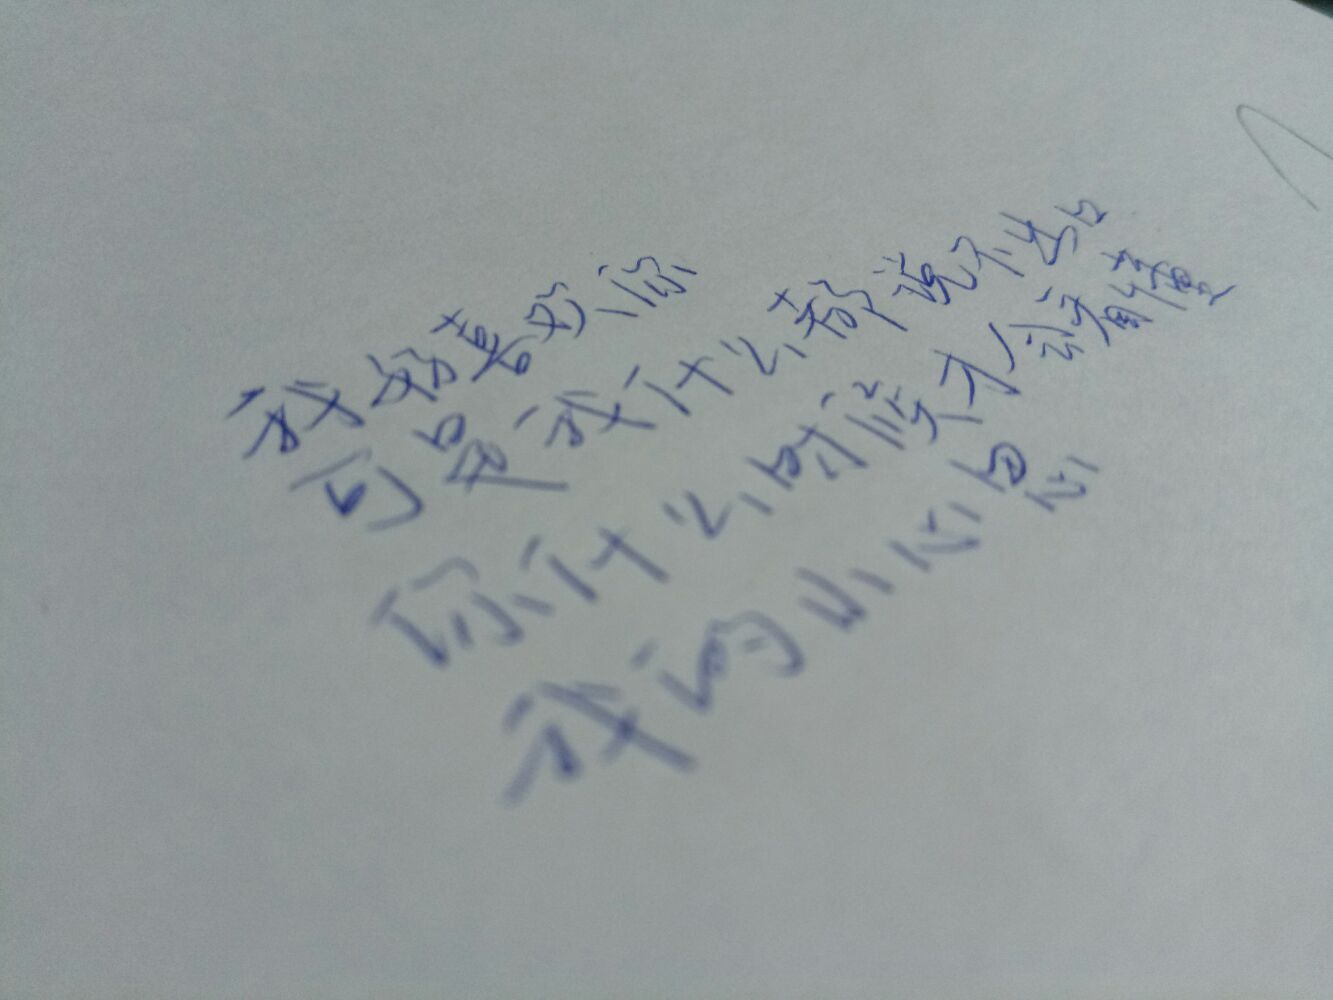 我好喜欢你
可是我什么都说不出口
你什么时候才会读懂
我的小心思